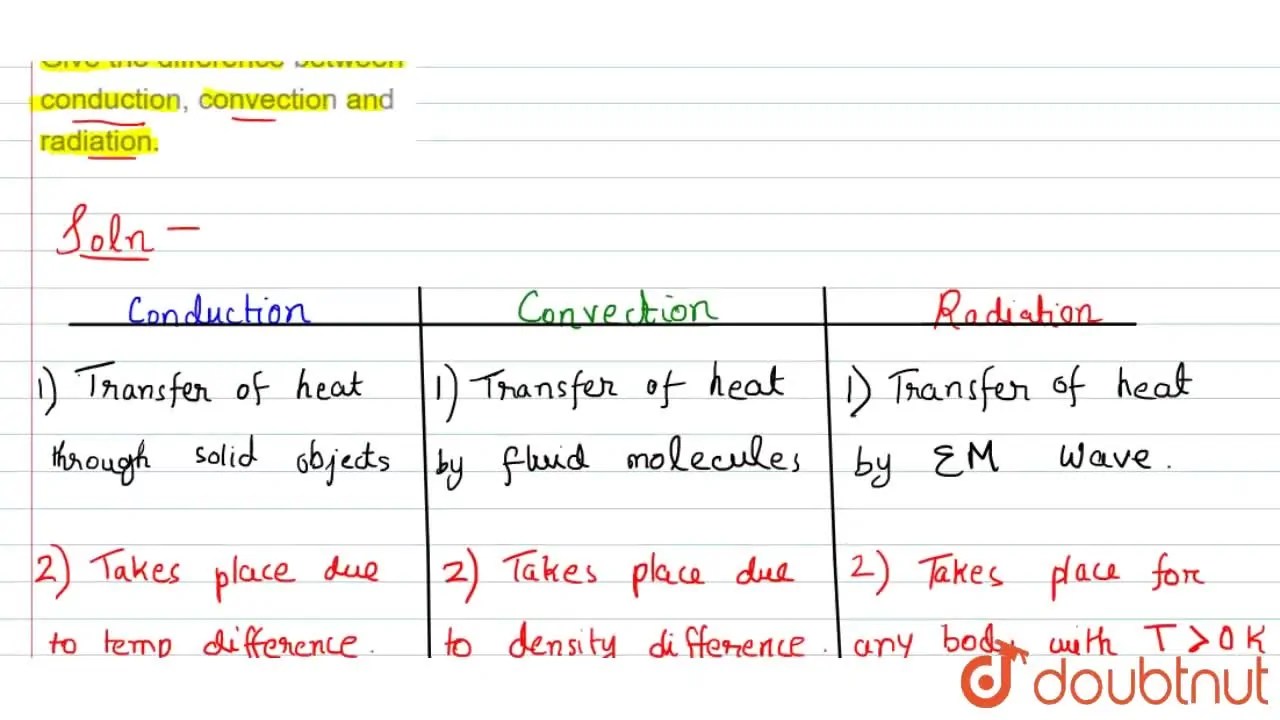 Give the difference between
conduction, convection and
radiation.
Soln -
Conduction Convection Radiation
1) Transfer of heat 1) Transfer of heat 1) Transfer of heat
through solid objects by fluid molecules by EM wave.
2) Takes place due 2) Takes place due 2) Takes place for
to temp difference. to density difference. any body with T > 0 K
doubtnut